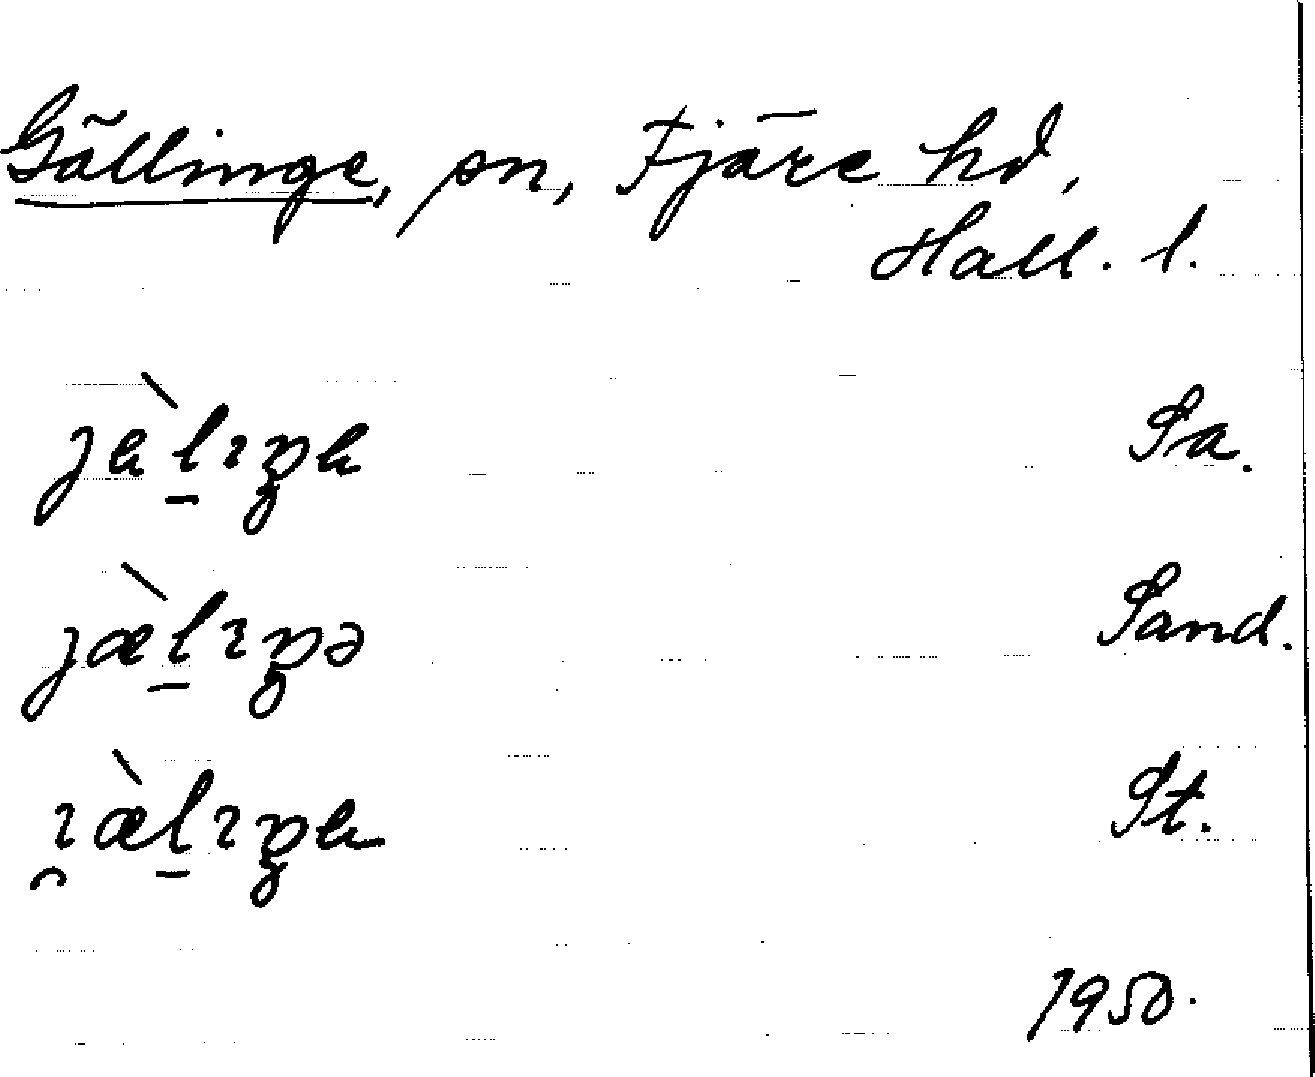 Gällinge, sn, Fjäre hd,
Hall. l.
jàl̠ıŋa Sa.
jæ̀l̠ıŋə Sand.
ı̯æ̀l̠ıŋa St.
1950.